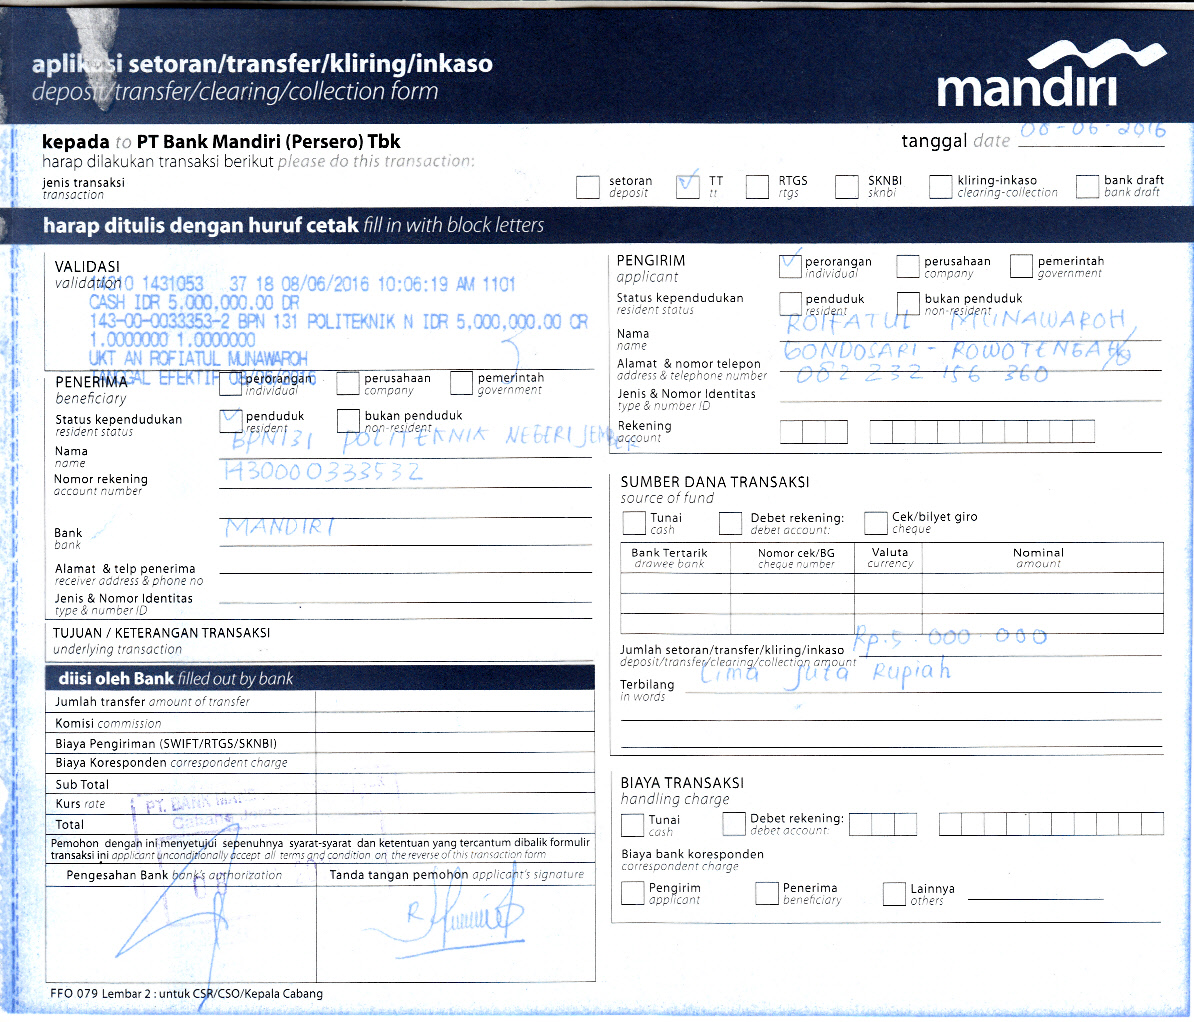 aplikasi setoran/transfer/kliring/inkaso
deposit/transfer/clearing/collection form
mandiri
kepada to PT Bank Mandiri (Persero) Tbk
tanggal date 08-06-2016
harap dilakukan transaksi berikut please do this transaction:
jenis transaksi
transaction
setoran
deposit
TT
tt
RTGS
rtgs
SKNBI
sknbi
kliring-inkaso
clearing-collection
bank draft
bank draft
harap ditulis dengan huruf cetak fill in with block letters
VALIDASI
validation
14310 1431053 37 18 08/06/2016 10:06:19 AM 1101
CASH IDR 5,000,000.00 DR
143-00-0033353-2 BPN 131 POLITEKNIK N IDR 5,000,000.00 CR
1.0000000 1.0000000
UKT AN ROFIATUL MUNAWAROH
TANGGAL EFEKTIF 08/06/2016
PENERIMA
beneficiary
perorangan
individual
perusahaan
company
pemerintah
government
Status kependudukan
resident status
penduduk
resident
bukan penduduk
non-resident
Nama
name
BPN131 POLITEKNIK NEGERI JEMBER
Nomor rekening
account number
1430000333532
Bank
bank
MANDIRI
Alamat & telp penerima
receiver address & phone no
Jenis & Nomor Identitas
type & number ID
TUJUAN / KETERANGAN TRANSAKSI
underlying transaction
diisi oleh Bank filled out by bank
Jumlah transfer amount of transfer
Komisi commission
Biaya Pengiriman (SWIFT/RTGS/SKNBI)
Biaya Koresponden correspondent charge
Sub Total
Kurs rate
Total
PT. BANK
Cabang
Pemohon dengan ini menyetujui sepenuhnya syarat-syarat dan ketentuan yang tercantum dibalik formulir
transaksi ini applicant unconditionally accept all terms and condition on the reverse of this transaction form
Pengesahan Bank bank's authorization
Tanda tangan pemohon applicant's signature
FFO 079 Lembar 2 : untuk CSR/CSO/Kepala Cabang
PENGIRIM
applicant
perorangan
individual
perusahaan
company
pemerintah
government
Status kependudukan
resident status
penduduk
resident
bukan penduduk
non-resident
Nama
name
ROIFATUL MUNAWAROH
Alamat & nomor telepon
address & telephone number
GONDOSARI - ROWOTENGAH
082 232 156 360
Jenis & Nomor Identitas
type & number ID
Rekening
account
SUMBER DANA TRANSAKSI
source of fund
Tunai
cash
Debet rekening:
debet account:
Cek/bilyet giro
cheque
Bank Tertarik
drawee bank
Nomor cek/BG
cheque number
Valuta
currency
Nominal
amount
Jumlah setoran/transfer/kliring/inkaso
deposit/transfer/clearing/collection amount
Rp.5.000.000
Terbilang
in words
Lima Juta Rupiah
BIAYA TRANSAKSI
handling charge
Tunai
cash
Debet rekening:
debet account:
Biaya bank koresponden
correspondent charge
Pengirim
applicant
Penerima
beneficiary
Lainnya
others